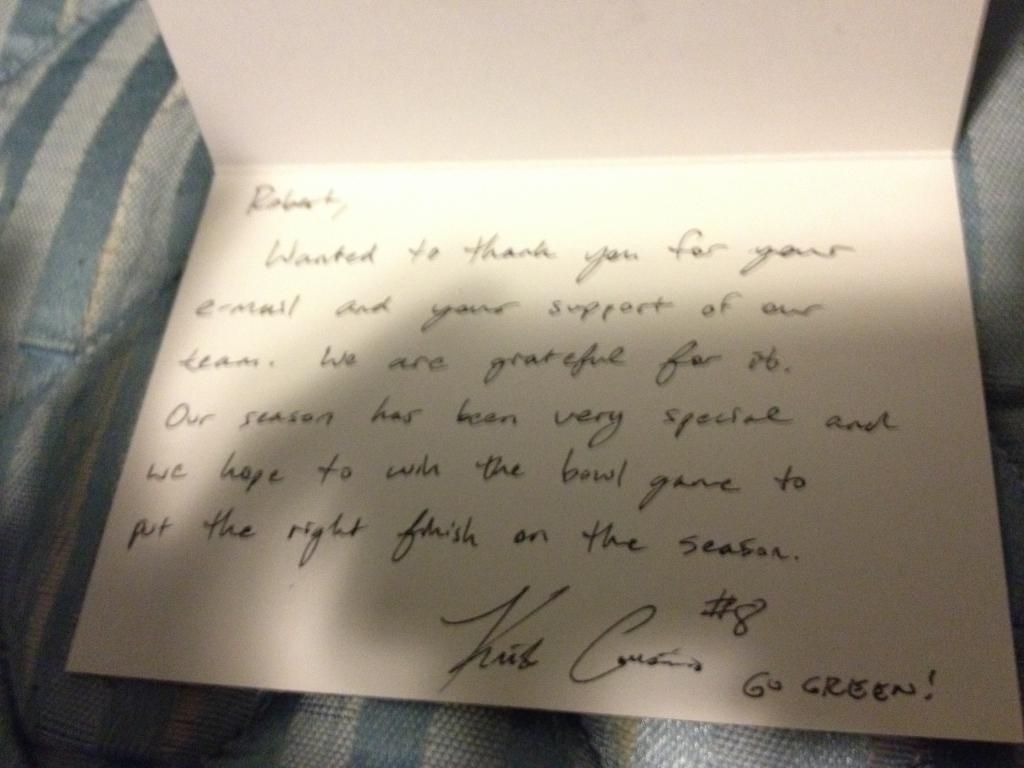 Robert,
Wanted to thank you for your
e-mail and your support of our
team. We are grateful for it.
Our season has been very special and
we hope to win the bowl game to
put the right finish on the season.
Kirk Cousins #8
GO GREEN!